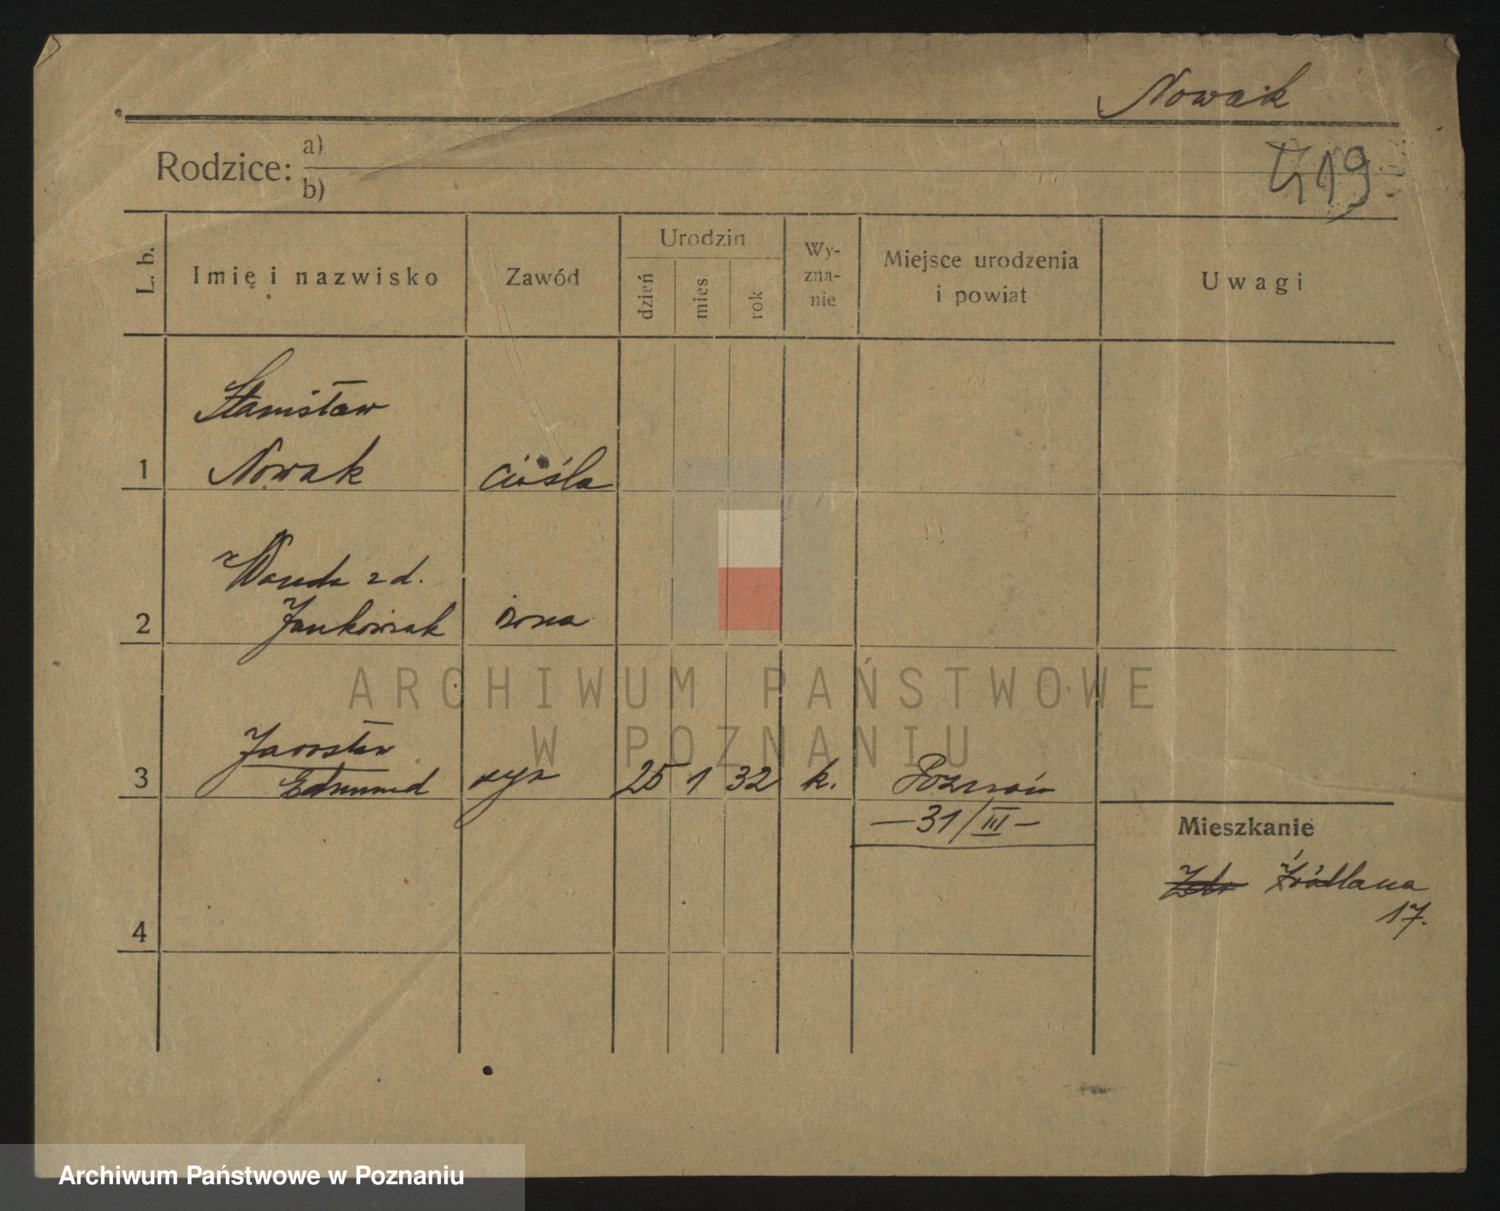 Nowak
419
Rodzice: a)
b)
L. b.
Imię i nazwisko
Zawód
Urodzin
dzień
mies
rok
Wy-
zna-
nie
Miejsce urodzenia
i powiat
Uwagi
Stanisław
1 Nowak cieśla
Wanda z d.
2 Jankowiak żona
Jarosław
3 Edmund syn 25 1 32 k. Poznań
— 31/III —
Mieszkanie
Źródlana
17.
4
ARCHIWUM PAŃSTWOWE
W POZNANIU
Archiwum Państwowe w Poznaniu